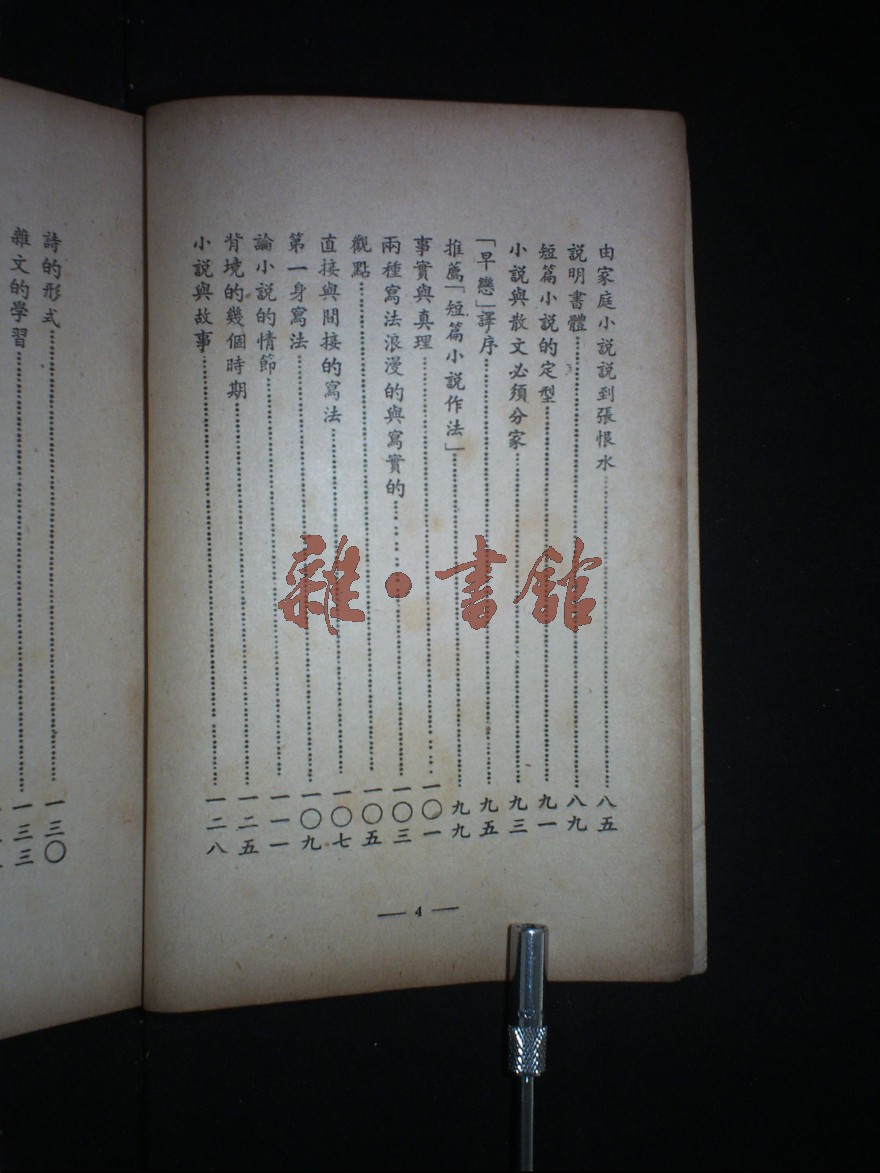 由家庭小説説到張恨水……八五
説明書體……八九
短篇小説的定型……九一
小説與散文必須分家……九三
「早戀」譯序……九五
推薦「短篇小説作法」……九九
事實與真理……一〇一
兩種寫法浪漫的與寫實的……一〇三
觀點……一〇五
直接與間接的寫法……一〇七
第一身寫法……一〇九
論小説的情節……一一一
背境的幾個時期……一二五
小説與故事……一二八
— 4 —
詩的形式……一三〇
雜文的學習……一三三
雜·書館